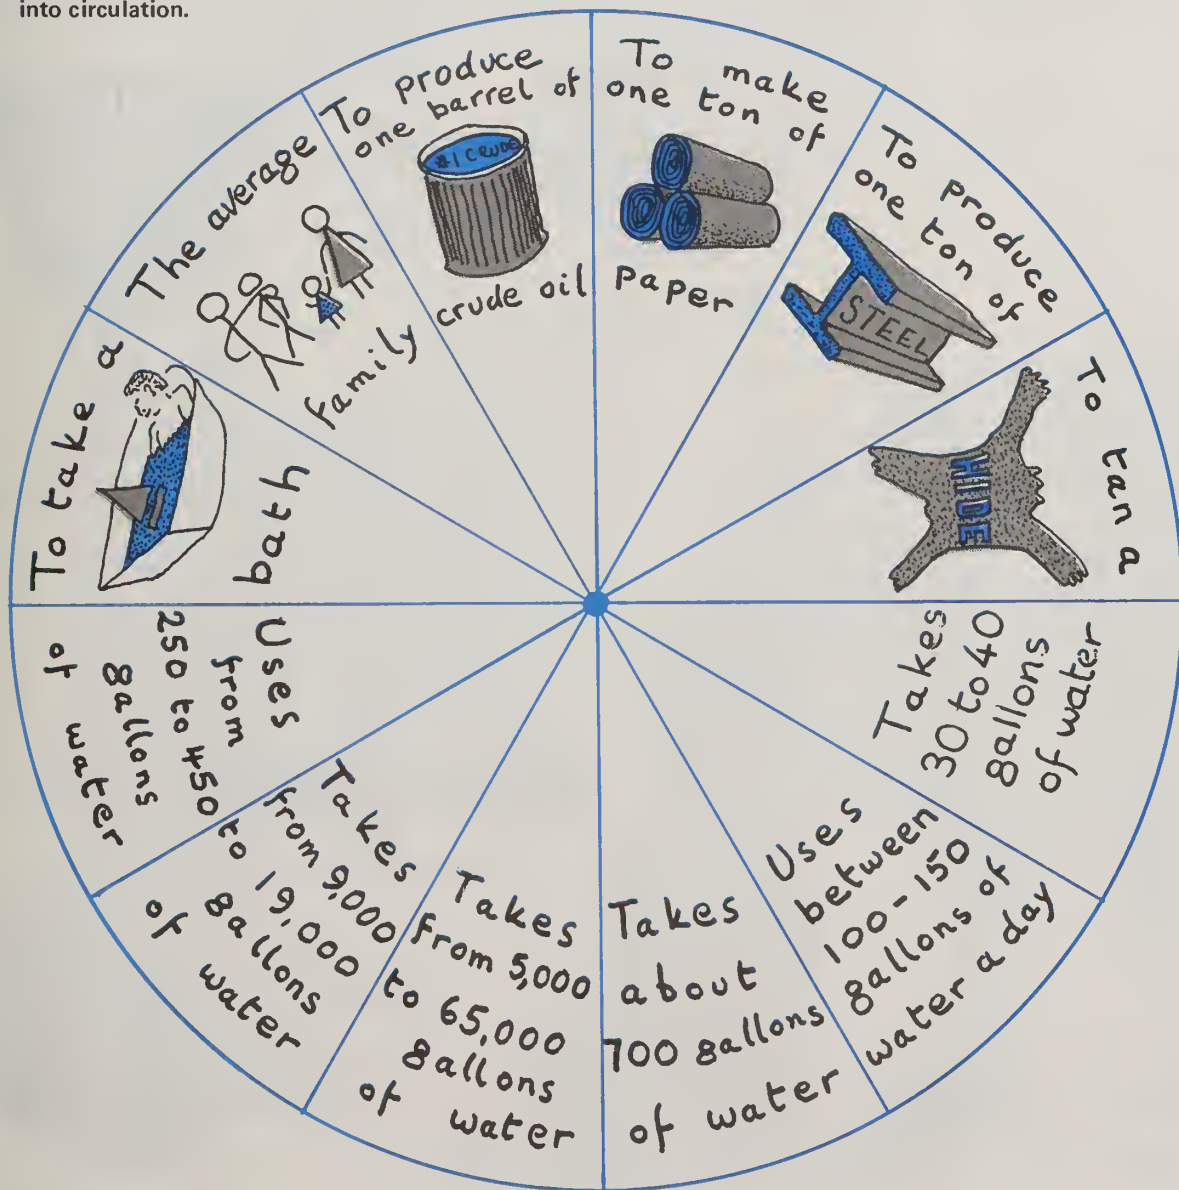 into circulation.
To take a
bath
The average
family
To produce
one barrel of
#1 CRUDE
crude oil
To make
one ton of
paper
To produce
one ton of
STEEL
To tan a
HIDE
Takes
30 to 40
gallons
of water
Uses
between
100-150
gallons of
water a day
Takes
about
700 gallons
of water
Takes
from 5,000
to 65,000
gallons
of water
Takes
from 9,000
to 19,000
gallons
of water
Uses
from
250 to 450
gallons
of water